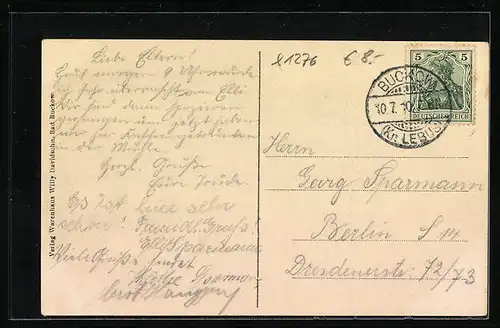 x1276 € 8.-
5 5
DEUTSCHES REICH
BUCKOW
10.7.10.
(Kr. LEBUS)
Verlag Warenhaus Willy Davidsohn, Bad Buckow
Liebe Eltern!
Heut morgen 9 Uhr wurde
ich sehr überrascht von Elli
Wir sind dann spazieren
gegangen und jetzt haben
wir Kaffee getrunken
in der Mühle.
Herzl. Grüße
Eure Trude.
Es ist hier sehr
schön! Freundl. Gruß!
Elli Sparmann
Viele Grüße sendet
Herrn
Georg Sparmann
Berlin S 14
Dresdenerstr. 72/73